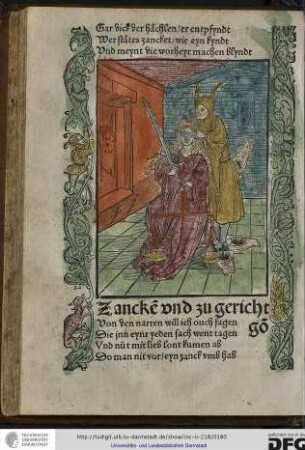 Gar dick der hächlen er entpfyndt
Wer stätes zancket / wie eyn kyndt
Vnd meynt die worheyt machen blyndt
Zanckẽ vnd zu gericht
gõ
Von den narren will ich ouch sagen
Die jnn eynr yeden sach went tagen
Vnd nüt mit lieb lont kumen ab
Do man nit vor / eyn zanck vmb hab
http://tudigit.ulb.tu-darmstadt.de/show/inc-ii-218/0180
Universitäts- und Landesbibliothek Darmstadt
DFG